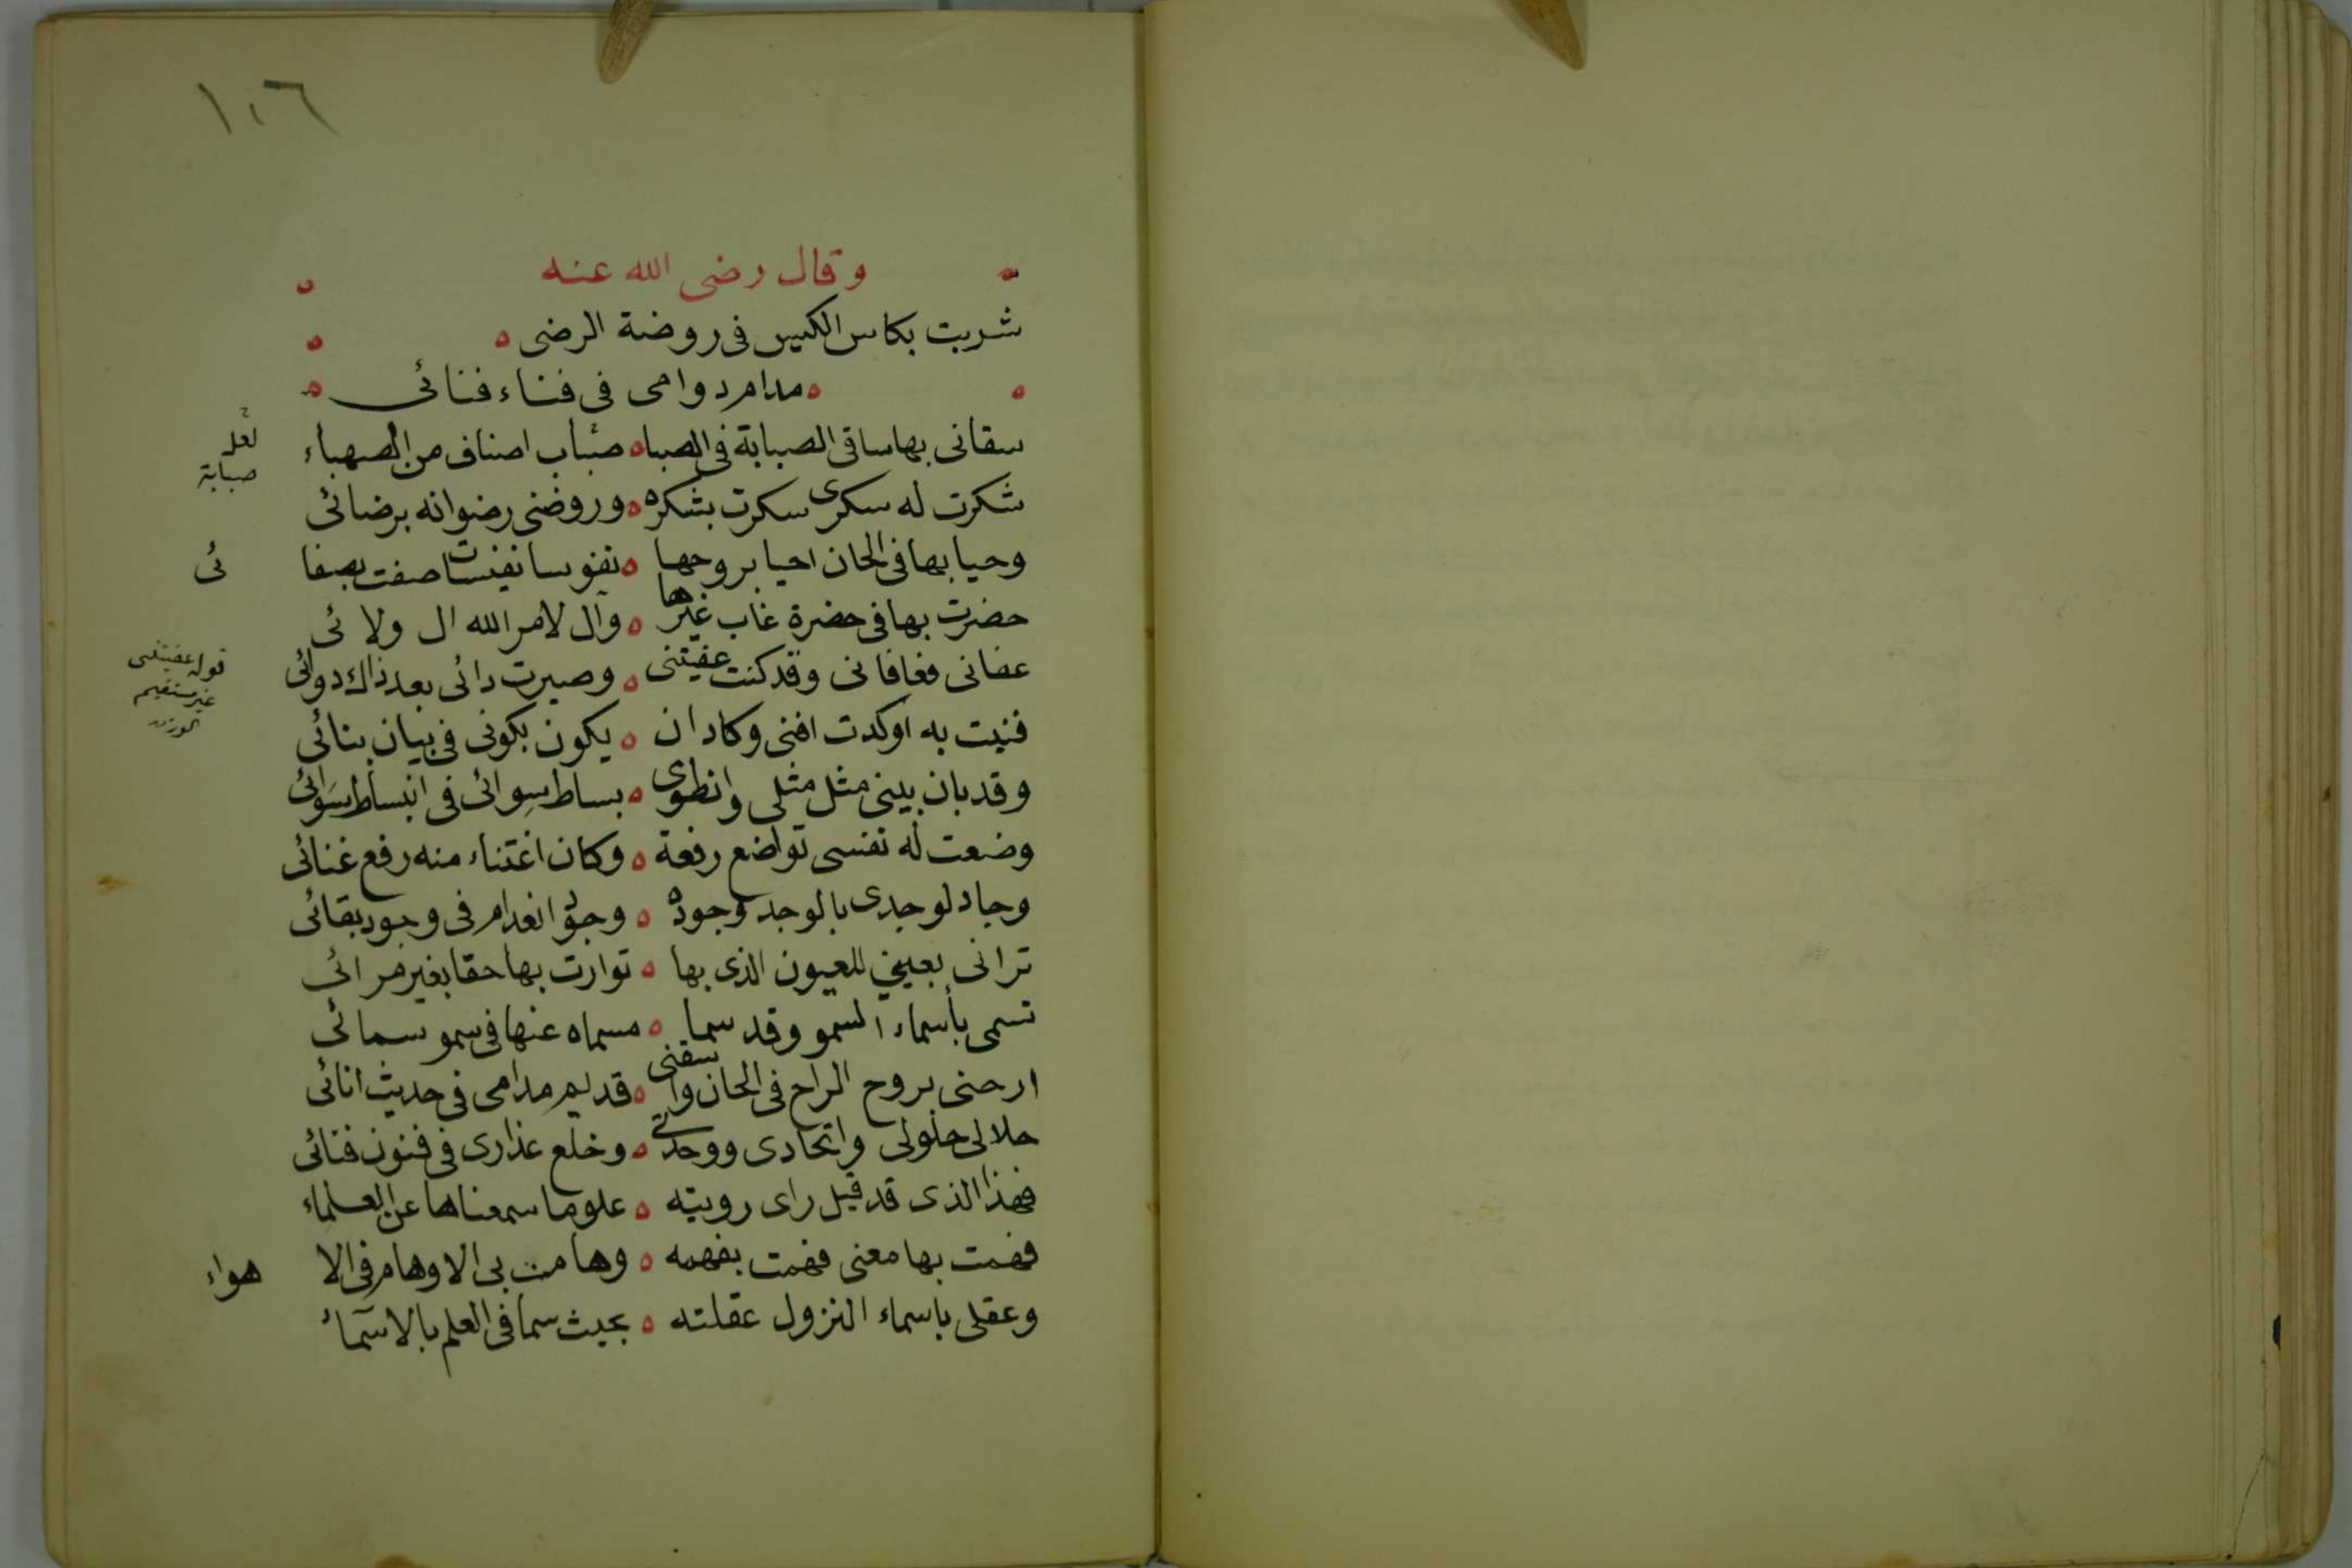 ١٠٦
وقال رضى الله عنه
شربت بكاس الكيس فى روضة الرضى
مدام دوامى فى فناء فنائى
سقانى بها ساقى الصبابة فى الصبا ه صباب اصناف من الصهباء
لعل
صبابة
شكرت له سكرى سكرت بشكره ه وروضنى رضوانه برضائى
وحيا بها فى الحان احيا بروحها ه نفوسا نفيسات صفت بصفا
ئى
حضرت بها فى حضرة غاب غيرها ه وآل لامر الله ال ولائى
عفانى فعافانى وقد كنت عفيتنى ه وصيرت دائى بعد ذاك دوائى
قوله عفيتنى
غير مستقيم
الوزن
فنيت به اوكدت افنى وكاد ان ه يكون بكونى فى بيان بنائى
وقد بان بينى مثل مثلى وانطوى ه بساط سِوائى فى انبساط سَوائى
وضعت له نفسى تواضع رفعة ه وكان اغتناء منه رفع غنائى
وجاد لوجدى بالوجد وجوده ه وجود انعدام فى وجود بقائى
ترانى بعينى للعيون الذى بها ه توارت بها حقا بغير مرائى
تسمى بأسماء السمو وقد سما ه مسماه عنها فى سمو سمائى
ارحنى بروح الراح فى الحان واسقنى ه قديم مدامى فى حديث انائى
حلالى حلولى واتحادى ووحدتى ه وخلع عذارى فى فنون فنائى
فهذا الذى قد قيل راى رويته ه علوما سمعناها عن العلماء
فهمت بها معنى فهمت بفهمه ه وهامت بى الاوهام فى الا
هواء
وعقلى باسماء النزول عقلته ه بحيث سما فى العلم بالاسماء